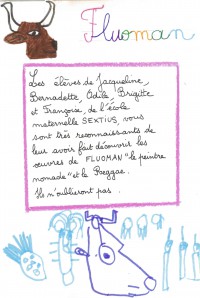 Fluoman
Les élèves de Jacqueline,
Bernadette, Odile, Brigitte
et Françoise, de l'école
maternelle SEXTIUS, vous
sont très reconnaissants de
leur avoir fait découvrir les
œuvres de FLUOMAN "le peintre
nomade" et le Raggae.
Ils n'oublieront pas.